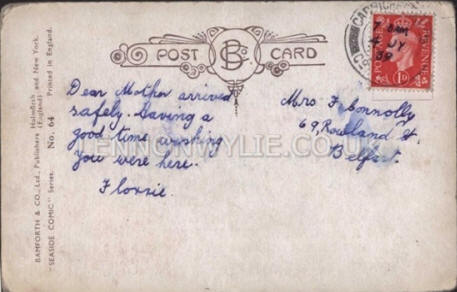 POST CARD
B
Dear Mother arrived
safely. Having a
good time wishing
you were here.
Flossie.
Mrs. F. Connolly
69, Rowland St.
Belfast.
REVENUE
BAMFORTH & CO., Ltd., Publishers Holmfirth (England) and New York.
"SEASIDE COMIC" Series. No. 64 Printed in England.